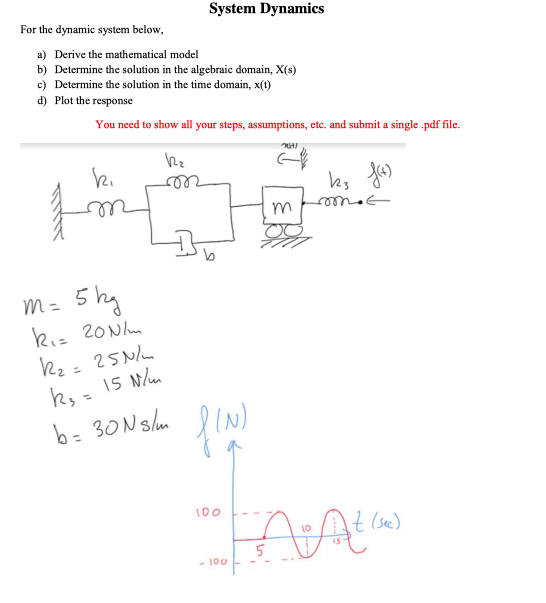 System Dynamics
For the dynamic system below,
a) Derive the mathematical model
b) Determine the solution in the algebraic domain, X(s)
c) Determine the solution in the time domain, x(t)
d) Plot the response
You need to show all your steps, assumptions, etc. and submit a single .pdf file.
x(t)
k₁ k₂ k₃ f(t)
m
b
m = 5 kg
k₁ = 20 N/m
k₂ = 25 N/m
k₃ = 15 N/m
b = 30 N s/m
f(N)
100
10
t (sec)
15
5
-100